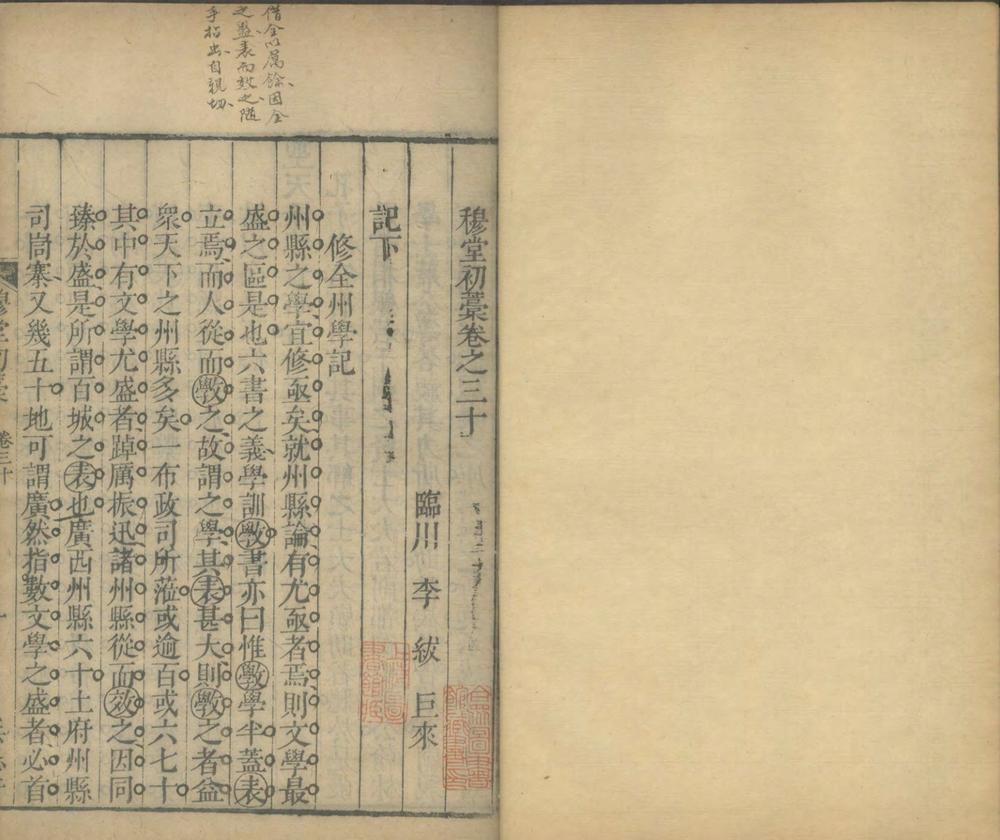 借全以厲餘因全
之盛表而效之隨
手指出自親切
穆堂初藁卷之三十
臨川 李紱 巨來
記下
修全州學記
州縣之學宜修亟矣就州縣論有尤亟者焉則文學最
盛之區是也六書之義學訓斆書亦曰惟斆學半蓋表
立焉而人從而斆之故謂之學其表甚大則斆之者益
衆天下之州縣多矣一布政司所蒞或逾百或六七十
其中有文學尤盛者踔厲振迅諸州縣從而效之因同
臻於盛是所謂百城之表也廣西州縣六十土府州縣
司峝寨又幾五十地可謂廣然指數文學之盛者必首
穆堂初藁 卷三十 一